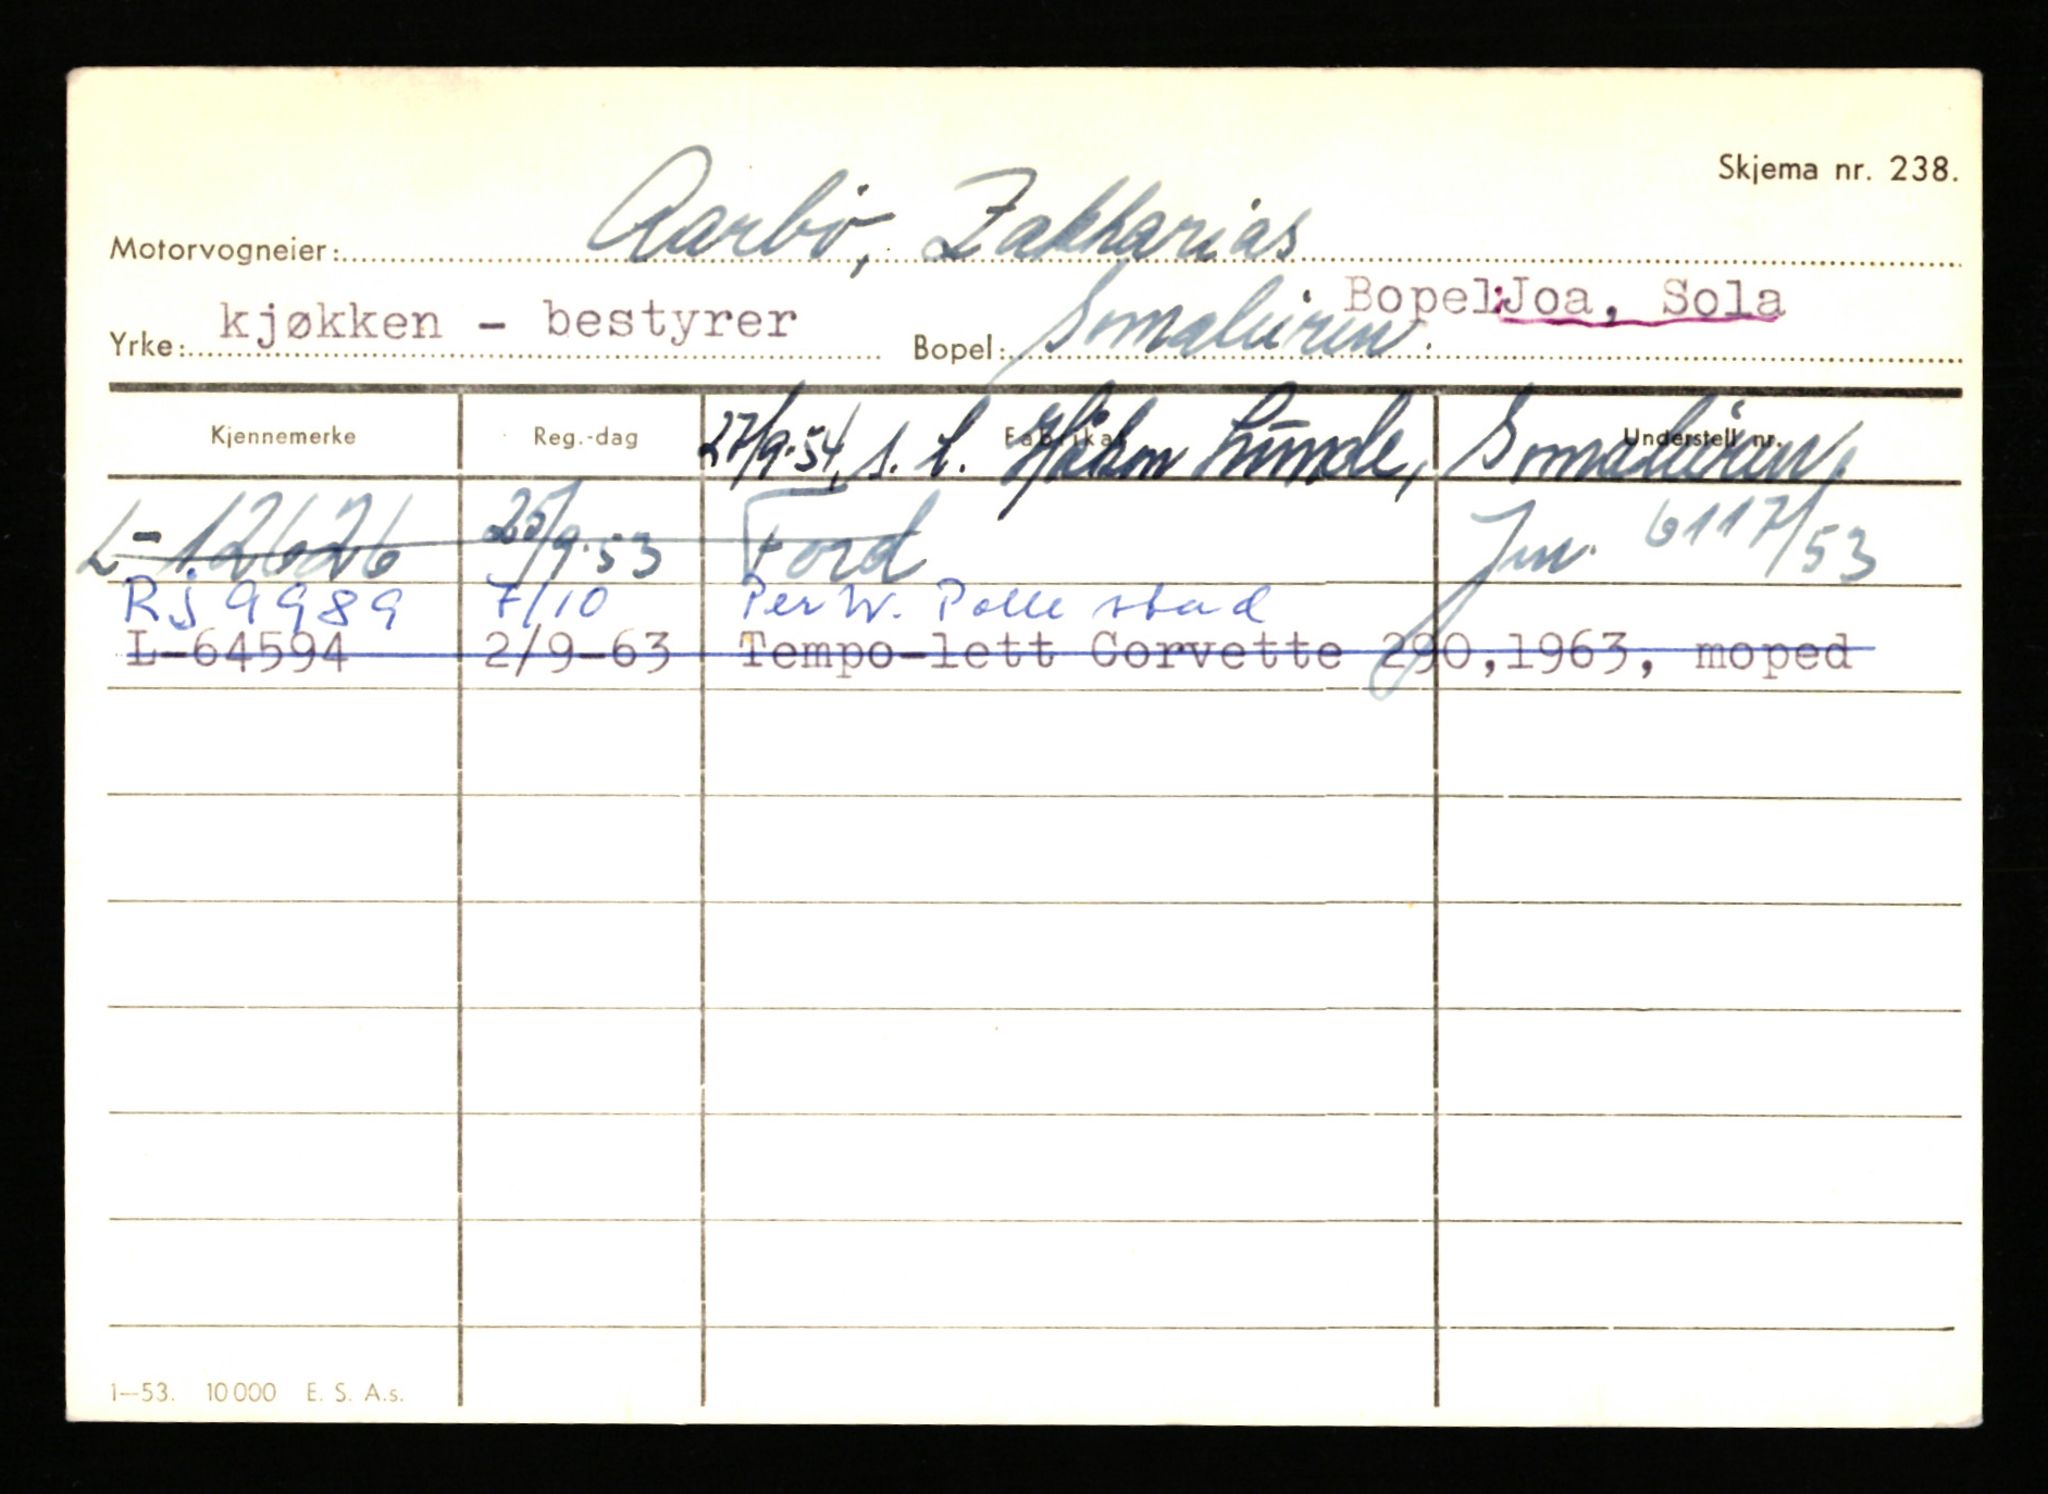 Skjema nr. 238.
Motorvogneier: Aarbö, Zakharias
Yrke: kjøkken - bestyrer Bopel: Bopel: Joa, Sola
Kjennemerke Reg.-dag Fabrikat Understell nr.
27/9-54, s. t. Håkon Lunde,
L-12626 25/9-53 Ford Jnr. 6117/53
Rj 9989 7/10 Per W. Pollestad
L-64594 2/9-63 Tempo-lett Corvette 290,1963, moped
1-53. 10000 E. S. A.s.